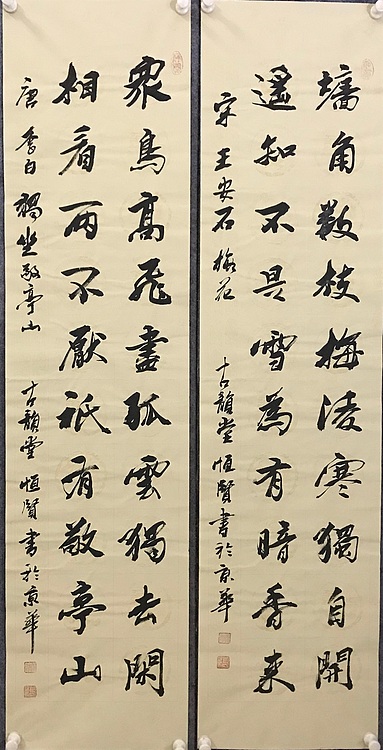 墻角數枝梅淩寒獨自開
遙知不是雪為有暗香来
宋 王安石 梅花 古韻堂恒賢書於京華
衆鳥高飛盡孤雲獨去閑
相看兩不厭祇有敬亭山
唐 李白 獨坐敬亭山 古韻堂恒賢書於京華